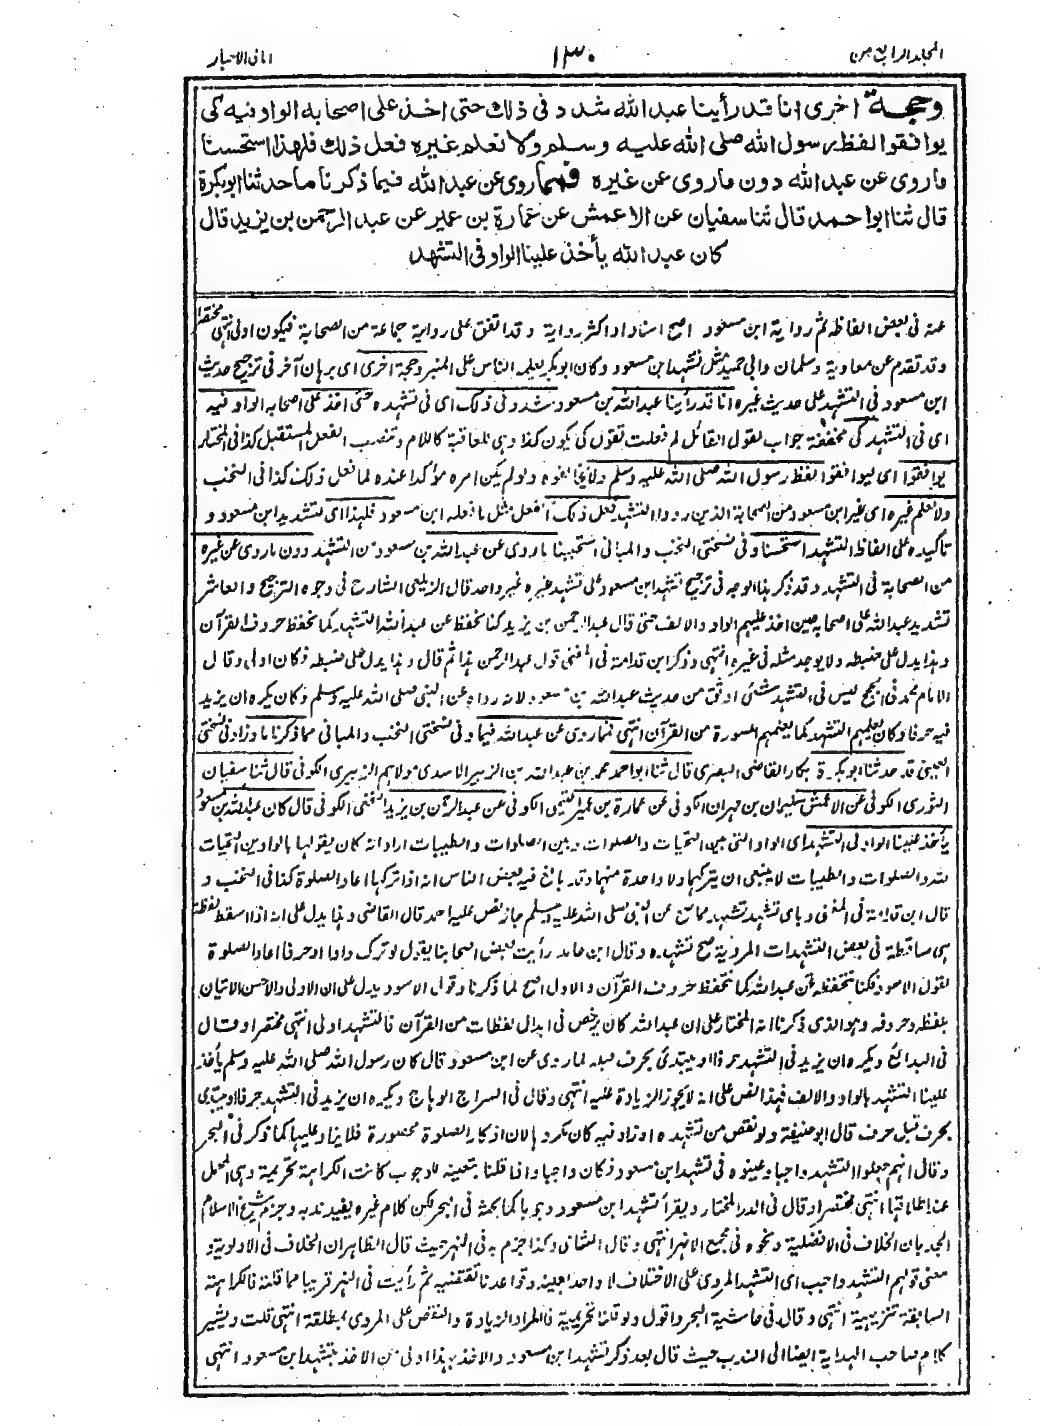 المجلد الرابع من
١٣٠
امانى الاحبار
وحجة اخرى انا قد رأينا عبد الله شدد فى ذلك حتى اخذ على اصحابه الواو فيه كى
يوافقوا لفظ رسول الله صلى الله عليه وسلم ولا نعلم غيره فعل ذلك فلهذا استحسنا
ما روى عن عبد الله دون ما روى عن غيره فمما روى عن عبد الله فيما ذكرنا ما حدثنا ابو بكرة
قال ثنا ابو احمد قال ثنا سفيان عن الاعمش عن عمارة بن عمير عن عبد الرحمن بن يزيد قال
كان عبد الله يأخذ علينا الواو فى التشهد
عنه فى بعض الفاظه ثم رواية ابن مسعود اصح اسنادا واكثر رواية وقد اتفق على رواية جماعة من الصحابة فيكون اولى انتهى مختصرا
وقد تقدم عن معاوية وسلمان وابى حميد مثل تشهد ابن مسعود وكان ابو بكر يعلمه الناس على المنبر وحجة اخرى اى برهان آخر فى ترجيح حديث
ابن مسعود فى التشهد على حديث غيره انا قد رأينا عبد الله بن مسعود شدد فى ذلك اى فى تشهده حتى اخذ على اصحابه الواو فيه
اى فى التشهد كى مخففة جواب لقول القائل لم فعلت تقول كى يكون كذا وهى للعاقبة كاللام وتنصب الفعل المستقبل كذا فى المختار
يوافقوا اى ليوافقوا لفظ رسول الله صلى الله عليه وسلم ولا يخالفوه ولو لم يكن امره مؤكدا عنده لما فعل ذلك كذا فى النخب
ولا نعلم غيره اى غير ابن مسعود من الصحابة الذين رووا التشهد فعل ذلك اى فعل مثل ما فعله ابن مسعود فلهذا اى لتشديد ابن مسعود و
تاكيده على الفاظ التشهد استحسنا وفى نسختى النخب والمبانى استحببنا ما روى عن عبد الله بن مسعود من التشهد دون ما روى عن غيره
من الصحابة فى التشهد وقد ذكر هذا الوجه فى ترجيح تشهد ابن مسعود على تشهد غيره غير واحد قال الزيلعى الشارح فى وجوه الترجيح والعاشر
تشديد عبد الله على اصحابه حين اخذ عليهم الواو والالف حتى قال عبد الرحمن بن يزيد كنا نحفظ عن عبد الله التشهد كما نحفظ حروف القرآن
وهذا يدل على ضبطه ولا يوجد مثله فى غيره انتهى وذكر ابن قدامة فى المغنى قول عبد الرحمن هذا ثم قال وهذا يدل على ضبطه فكان اولى وقال
الامام محمد فى الحجج ليس فى التشهد شئ اوثق من حديث عبد الله بن مسعود لانه رواه عن النبى صلى الله عليه وسلم وكان يكره ان يزيد
فيه حرفا وكان يعلمهم التشهد كما يعلمهم السورة من القرآن انتهى فمما روى عن عبد الله فيما وفى نسختى النخب والمبانى مما ذكرنا ما وزاد فى نسختى
العينى قد حدثنا ابو بكرة بكار القاضى البصرى قال ثنا ابو احمد محمد بن عبد الله بن الزبير الاسدى مولاهم الزبيرى الكوفى قال ثنا سفيان
الثورى الكوفى عن الاعمش سليمان بن مهران الكوفى عن عمارة بن عمير التيمى الكوفى عن عبد الرحمن بن يزيد النخعى الكوفى قال كان عبد الله بن مسعود
يأخذ علينا الواو فى التشهد اى الواو التى بين التحيات والصلوات وبين الصلوات والطيبات اراد انه كان يقولها بالواو بين التحيات
لله والصلوات والطيبات لا ينبغى ان يتركها ولا واحدة منها وقد بالغ فيه بعض الناس انه اذا تركها اعاد الصلوة كذا فى النخب و
قال ابن قدامة فى المغنى وباى تشهد تشهد مما صح عن النبى صلى الله عليه وسلم جاز نص عليه احمد قال القاضى وهذا يدل على انه اذا اسقط لفظة
هى ساقطة فى بعض التشهدات المروية صح تشهده وقال ابن حامد رأيت بعض اصحابنا يقول لو ترك واوا او حرفا اعاد الصلوة
لقول الاسود فكنا نتحفظه عن عبد الله كما نتحفظ حروف القرآن والاول اصح لما ذكرنا وقول الاسود يدل على ان الاولى والاحسن الاتيان
بلفظه وحروفه وهو الذى ذكرنا انه المختار على ان عبد الله كان يرخص فى ابدال لفظات من القرآن فالتشهد اولى انتهى مختصرا وقال
فى البدائع ويكره ان يزيد فى التشهد حرفا او يبتدئ بحرف قبله لما روى عن ابن مسعود قال كان رسول الله صلى الله عليه وسلم يأخذ
علينا التشهد بالواو والالف فهذا نص على انه لا يجوز الزيادة عليه انتهى وقال فى السراج الوهاج ويكره ان يزيد فى التشهد حرفا او يبتدئ
بحرف قبل حرف قال ابو حنيفة ولو نقص من تشهده او زاد فيه كان مكروها لان اذكار الصلوة محصورة فلا يزاد عليها كما ذكر فى البحر
وقال انهم جعلوا التشهد واجبا وعينوه فى تشهد ابن مسعود فكان واجبا واذا قلنا بتعينه للوجوب كانت الكراهة تحريمية وهى المحمل
عند اطلاقها انتهى مختصرا وقال فى الدر المختار ويقرأ تشهد ابن مسعود وجوبا كما بحثه فى البحر لكن كلام غيره يفيد ندبه وجزم شيخ الاسلام
الجد بان الخلاف فى الافضلية ونحوه فى مجمع الانهر انتهى وقال الشامى وكذا جزم به فى النهر حيث قال الظاهر ان الخلاف فى الاولوية و
معنى قولهم التشهد واجب اى التشهد المروى على الاختلاف لا واحد بعينه وقواعدنا تقتضيه ثم رأيت فى النهر قريبا مما قلته فالكراهة
السابقة تنزيهية انتهى وقال فى حاشية البحر واقول ولو قلنا تحريمية فالمراد الزيادة والنقص على المروى بمطلقه انتهى قلت ويشير
كلام صاحب الهداية ايضا الى الندب حيث قال بعد ذكر تشهد ابن مسعود والاخذ بهذا اولى من الاخذ بتشهد ابن مسعود انتهى